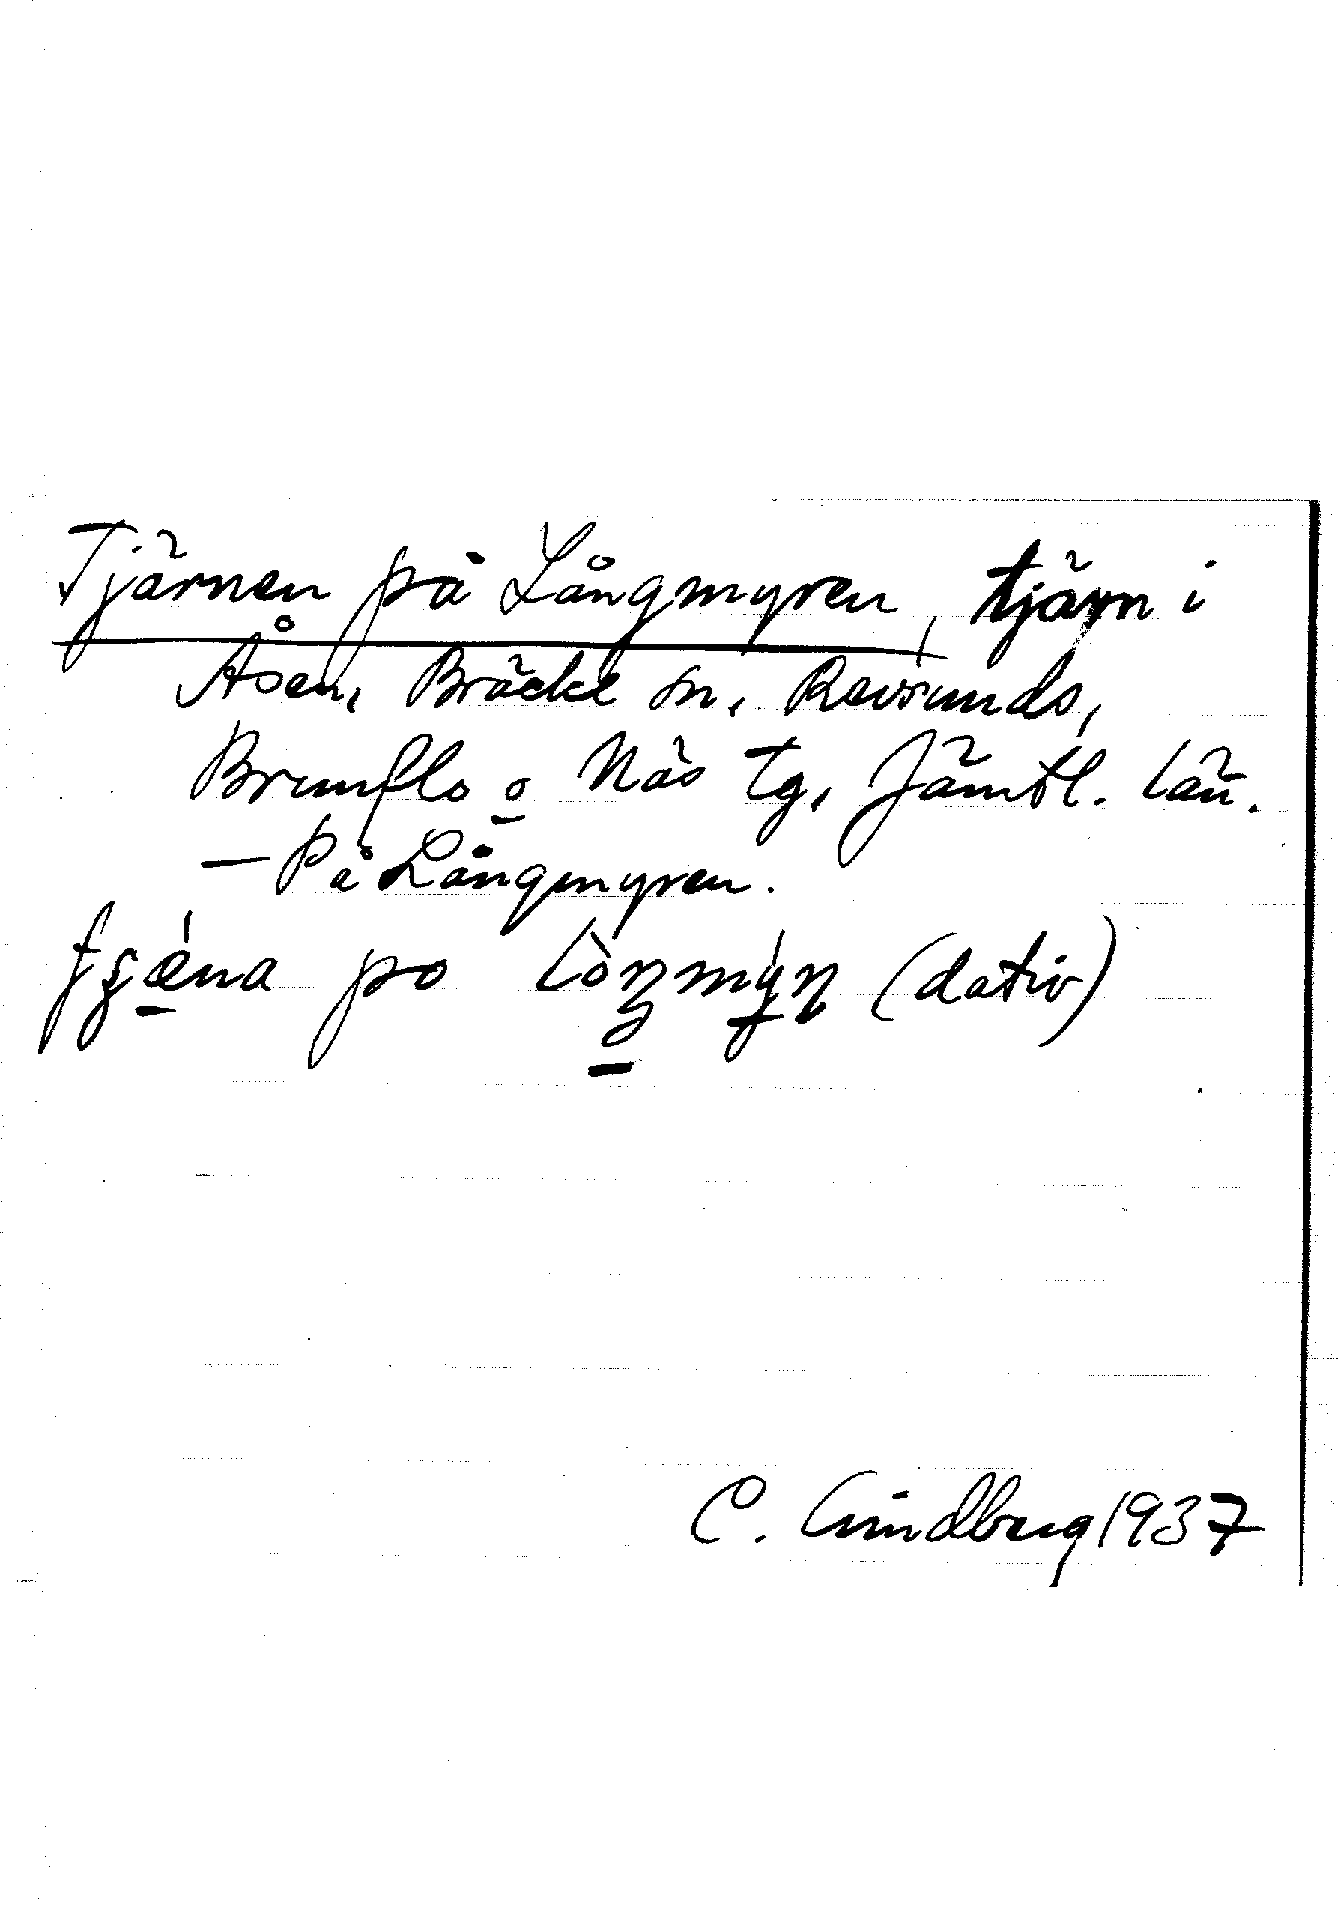 Tjärnen på Långmyren, tjärn i
Åsen, Bräcke sn, Revsunds,
Brunflo o Näs tg, Jämtl. län.
— På Långmyren.
po (dativ)
C. Lindberg 1937